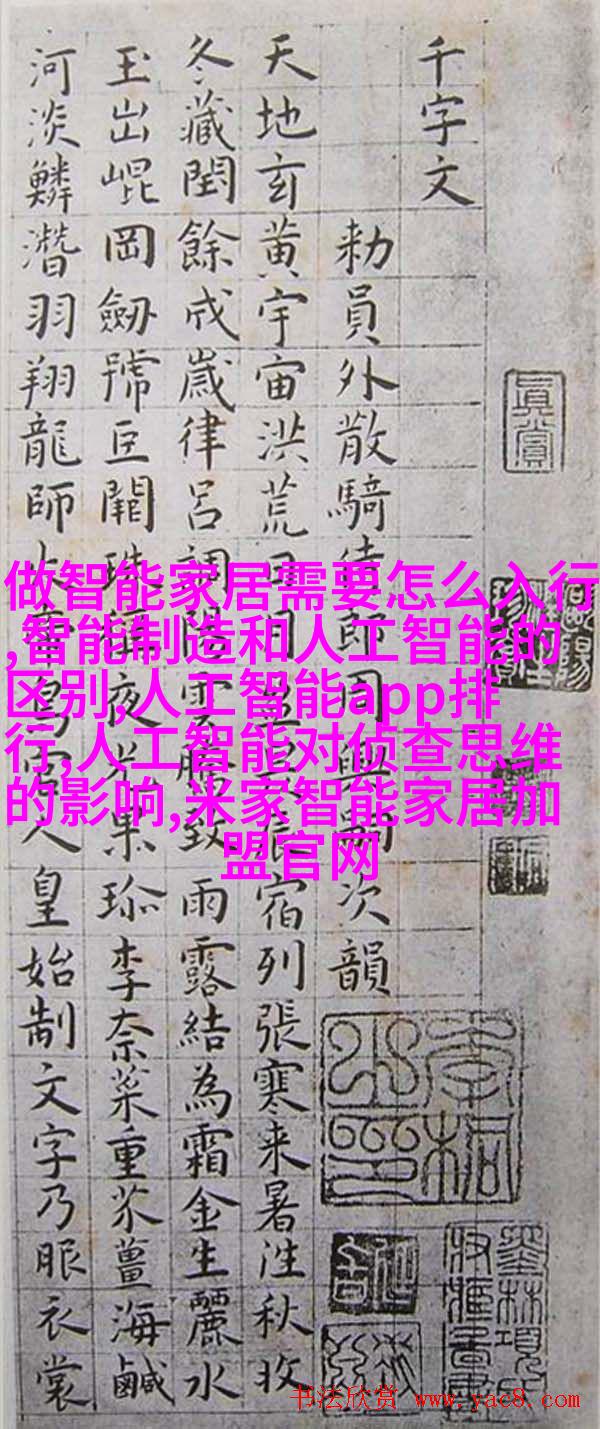 千字文
勑員外散騎侍郎周興嗣次韻
天地玄黄宇宙洪荒日月盈昃辰宿列張寒来暑往秋收
冬藏閏餘成歲律呂調陽雲騰致雨露結為霜金生麗水
玉出崐岡劒號巨闕珠稱夜光果珎李柰菜重芥薑海鹹
河淡鱗潛羽翔龍師火帝鳥官人皇始制文字乃服衣裳
真賞
做智能家居需要怎么入行
,智能制造和人工智能的
区别,人工智能app排
行,人工智能对侦查思维
的影响,米家智能家居加
盟官网
书法欣赏 www.yac8.com